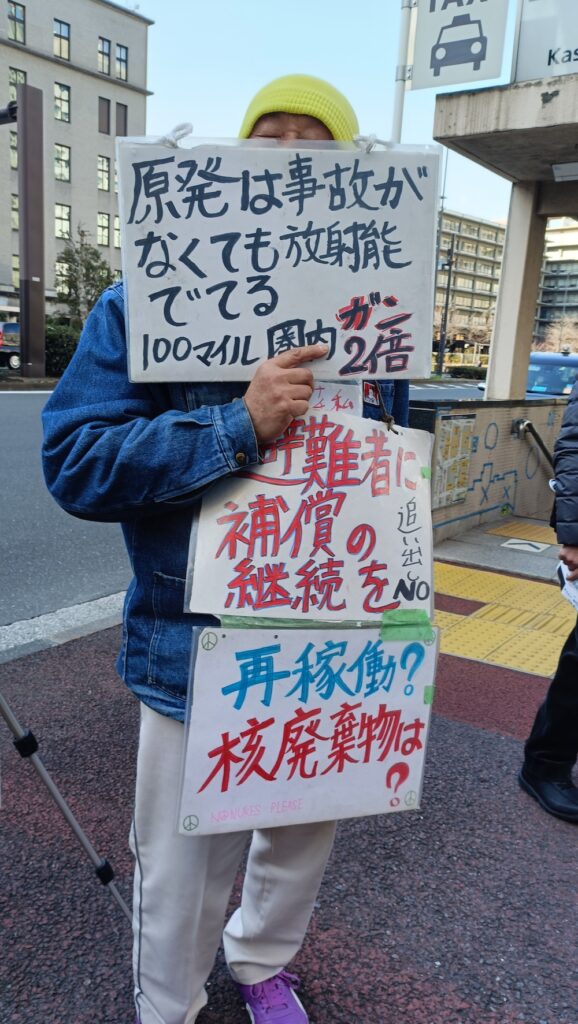 TAXI
Kas
原発は事故が
なくても放射能
でてる
100マイル圏内ガン
2倍
避難者に
補償の
継続を
追い出しNO
再稼働?
核廃棄物は
?
NO NUKES PLEASE